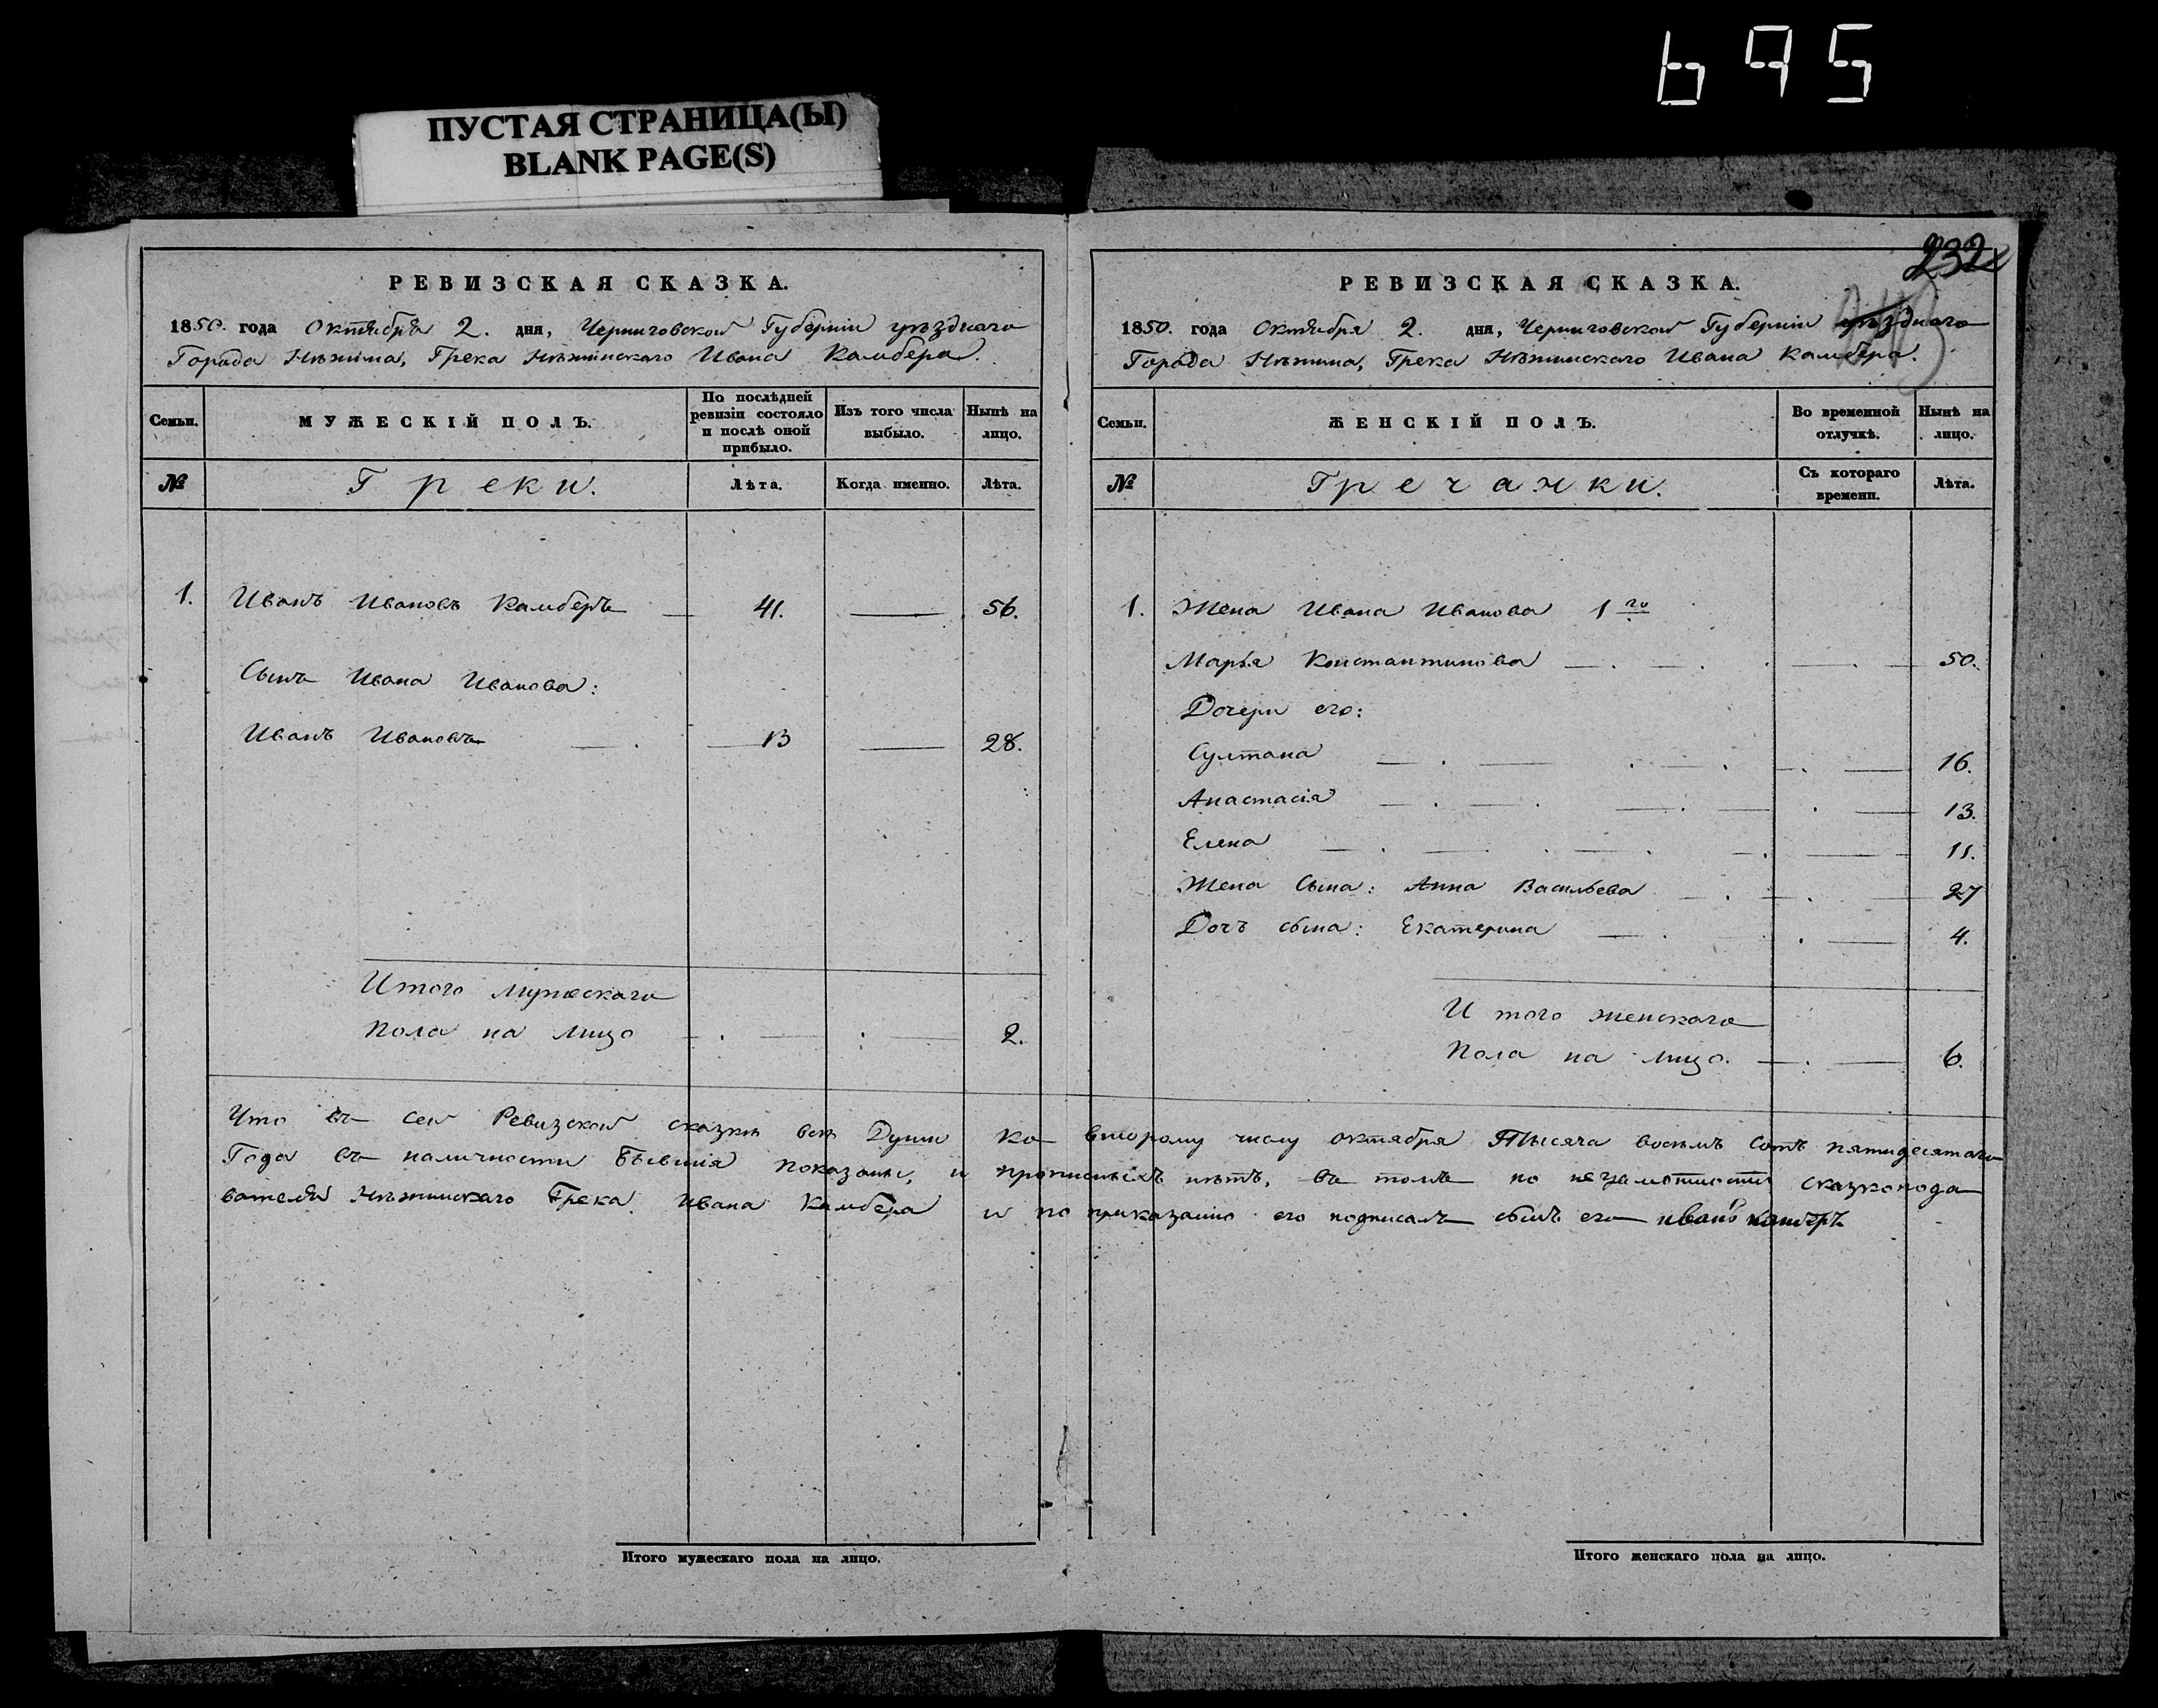 695
ПУСТАЯ СТРАНИЦА(Ы)
BLANK PAGE(S)
РЕВИЗСКАЯ СКАЗКА.
1850. года Октября 2. дня, Черниговской Губерніи уѣзднаго
Города Нѣжина, Грека Нѣжинскаго Ивана Камбера.
Семьи.
МУЖЕСКІЙ ПОЛЪ.
По послѣдней ревизіи состояло и послѣ оной прибыло.
Изъ того числа выбыло.
Нынѣ на лицо.
№
Греки.
Лѣта.
Когда именно.
Лѣта.
1. Иванъ Ивановъ Камберъ — 41. — 56.
Сынъ Ивана Иванова:
Иванъ Ивановъ — 13 — 28.
Итого мужескаго
Пола на лицо — 2.
232
РЕВИЗСКАЯ СКАЗКА.
1850. года Октября 2. дня, Черниговской Губерніи уѣзднаго
Города Нѣжина, Грека Нѣжинскаго Ивана Камбера.
Семьи.
ЖЕНСКІЙ ПОЛЪ.
Во временной отлучкѣ.
Нынѣ на лицо.
№
Гречанки.
Съ котораго времени.
Лѣта.
1. Жена Ивана Иванова 1го
Марья Константинова — 50.
Дочери его:
Султана — 16.
Анастасія — 13.
Елена — 11.
Жена Сына: Анна Васильева — 27
Дочь сына: Екатерина — 4.
Итого женскаго
Пола на лицо. — 6.
Что въ сей Ревизской сказкѣ всѣ Души ко второму числу октября Тысяча восемъ сотъ пятидесятаго
Года въ наличности бывшія показаны, и прописныхъ нѣтъ, въ томъ по неграмотности сказкопода
вателя Нѣжинскаго Грека Ивана Камбера и по приказанію его подписалъ сынъ его иванъ камбръ
Итого мужескаго пола на лицо.
Итого женскаго пола на лицо.